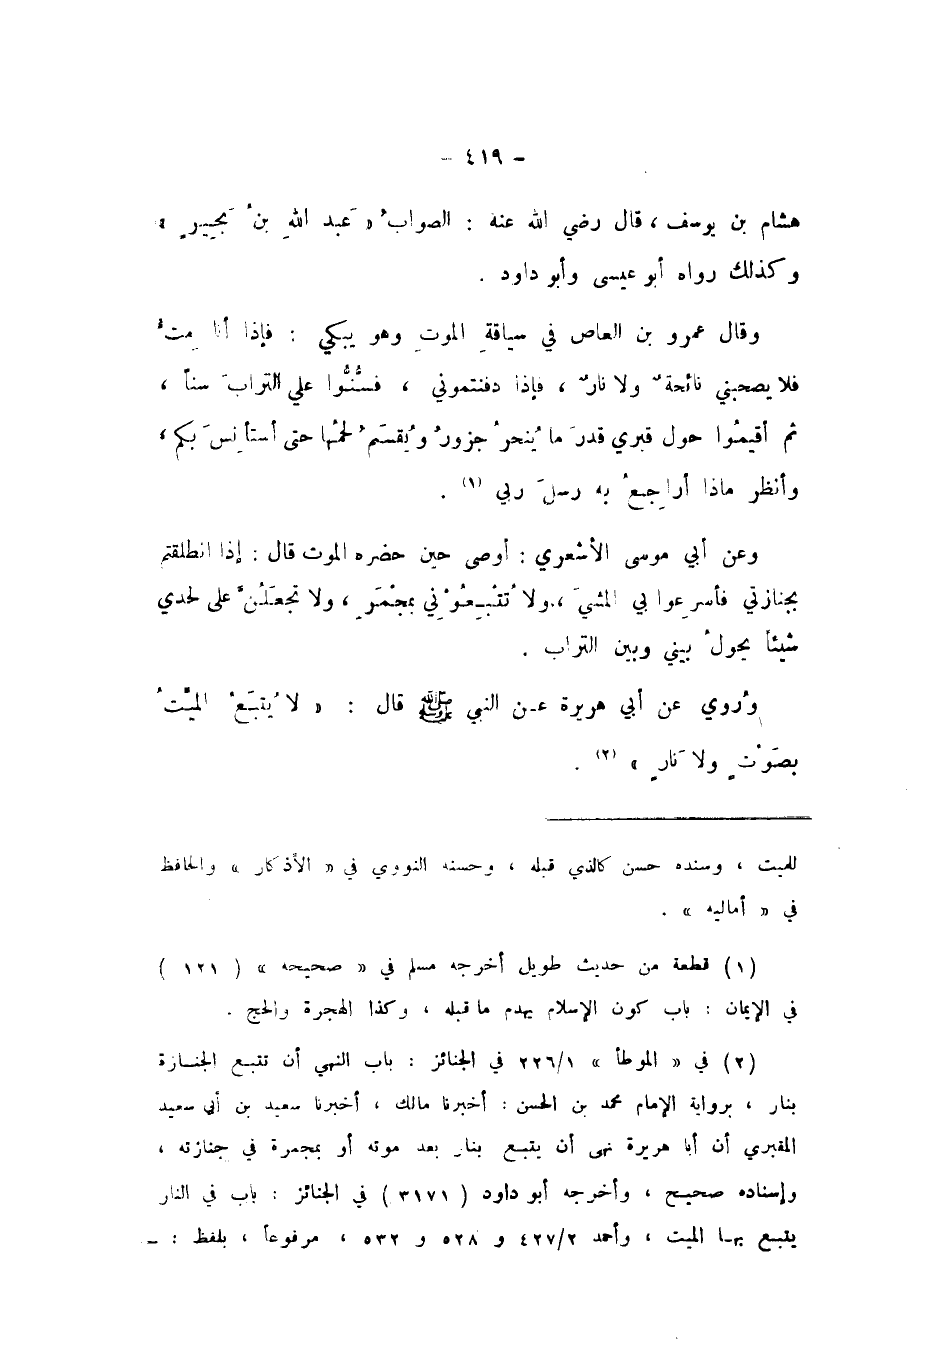 - ٤١٩ -
هشام بن يوسف ، قال رضي الله عنه : الصوابُ « عَبد اللهِ بنُ بَجِيرٍ »
وكذلك رواه أبو عيسى وأبو داود .
وقال عمرو بن العاص في سياقةِ الموتِ وهو يبكي : فإذا أنا مِتُ
فلا يصحبني نائحةٌ ولا نارٌ ، فإذا دفنتموني ، فسُنُّوا علي التراب سناً ،
ثم أقيمُوا حول قبري قدرَ ما يُنحرُ جزورٌ ويُقسَمُ لحمُها حتى أستأنسَ بكم ،
وأنظر ماذا أراجِعُ به رسلَ ربي (١) .
وعن أبي موسى الأشعري : أوصى حين حضره الموت قال : إذا انطلقتم
بجنازتي فأسرِعوا بي المشيَ ، ولا تُتْبِعُوْني بمِجْمَرٍ ، ولا تجعَلُنَّ على لحدي
شيئاً يحولُ بيني وبين التراب .
ورُوي عن أبي هريرة عن النبي ﷺ قال : « لا يُتبَعُ الميِّتُ
بصَوْتٍ ولا نَارٍ » (٢) .
للميت ، وسنده حسن كالذي قبله ، وحسنه النووي في « الأذكار » والحافظ
في « أماليه » .
(١) قطعة من حديث طويل أخرجه مسلم في « صحيحه » ( ١٢١ )
في الإيمان : باب كون الإسلام يهدم ما قبله ، وكذا الهجرة والحج .
(٢) في « الموطأ » ٢٢٦/١ في الجنائز : باب النهي أن تتبع الجنازة
بنار ، برواية الإمام محمد بن الحسن : أخبرنا مالك ، أخبرنا سعيد بن أبي سعيد
المقبري أن أبا هريرة نهى أن يتبع بنار بعد موته أو بمجمرة في جنازته ،
وإسناده صحيح ، وأخرجه أبو داود ( ٣١٧١ ) في الجنائز : باب في النار
يتبع بها الميت ، وأحمد ٤٢٧/٢ و ٥٢٨ و ٥٣٢ ، مرفوعاً ، بلفظ : -